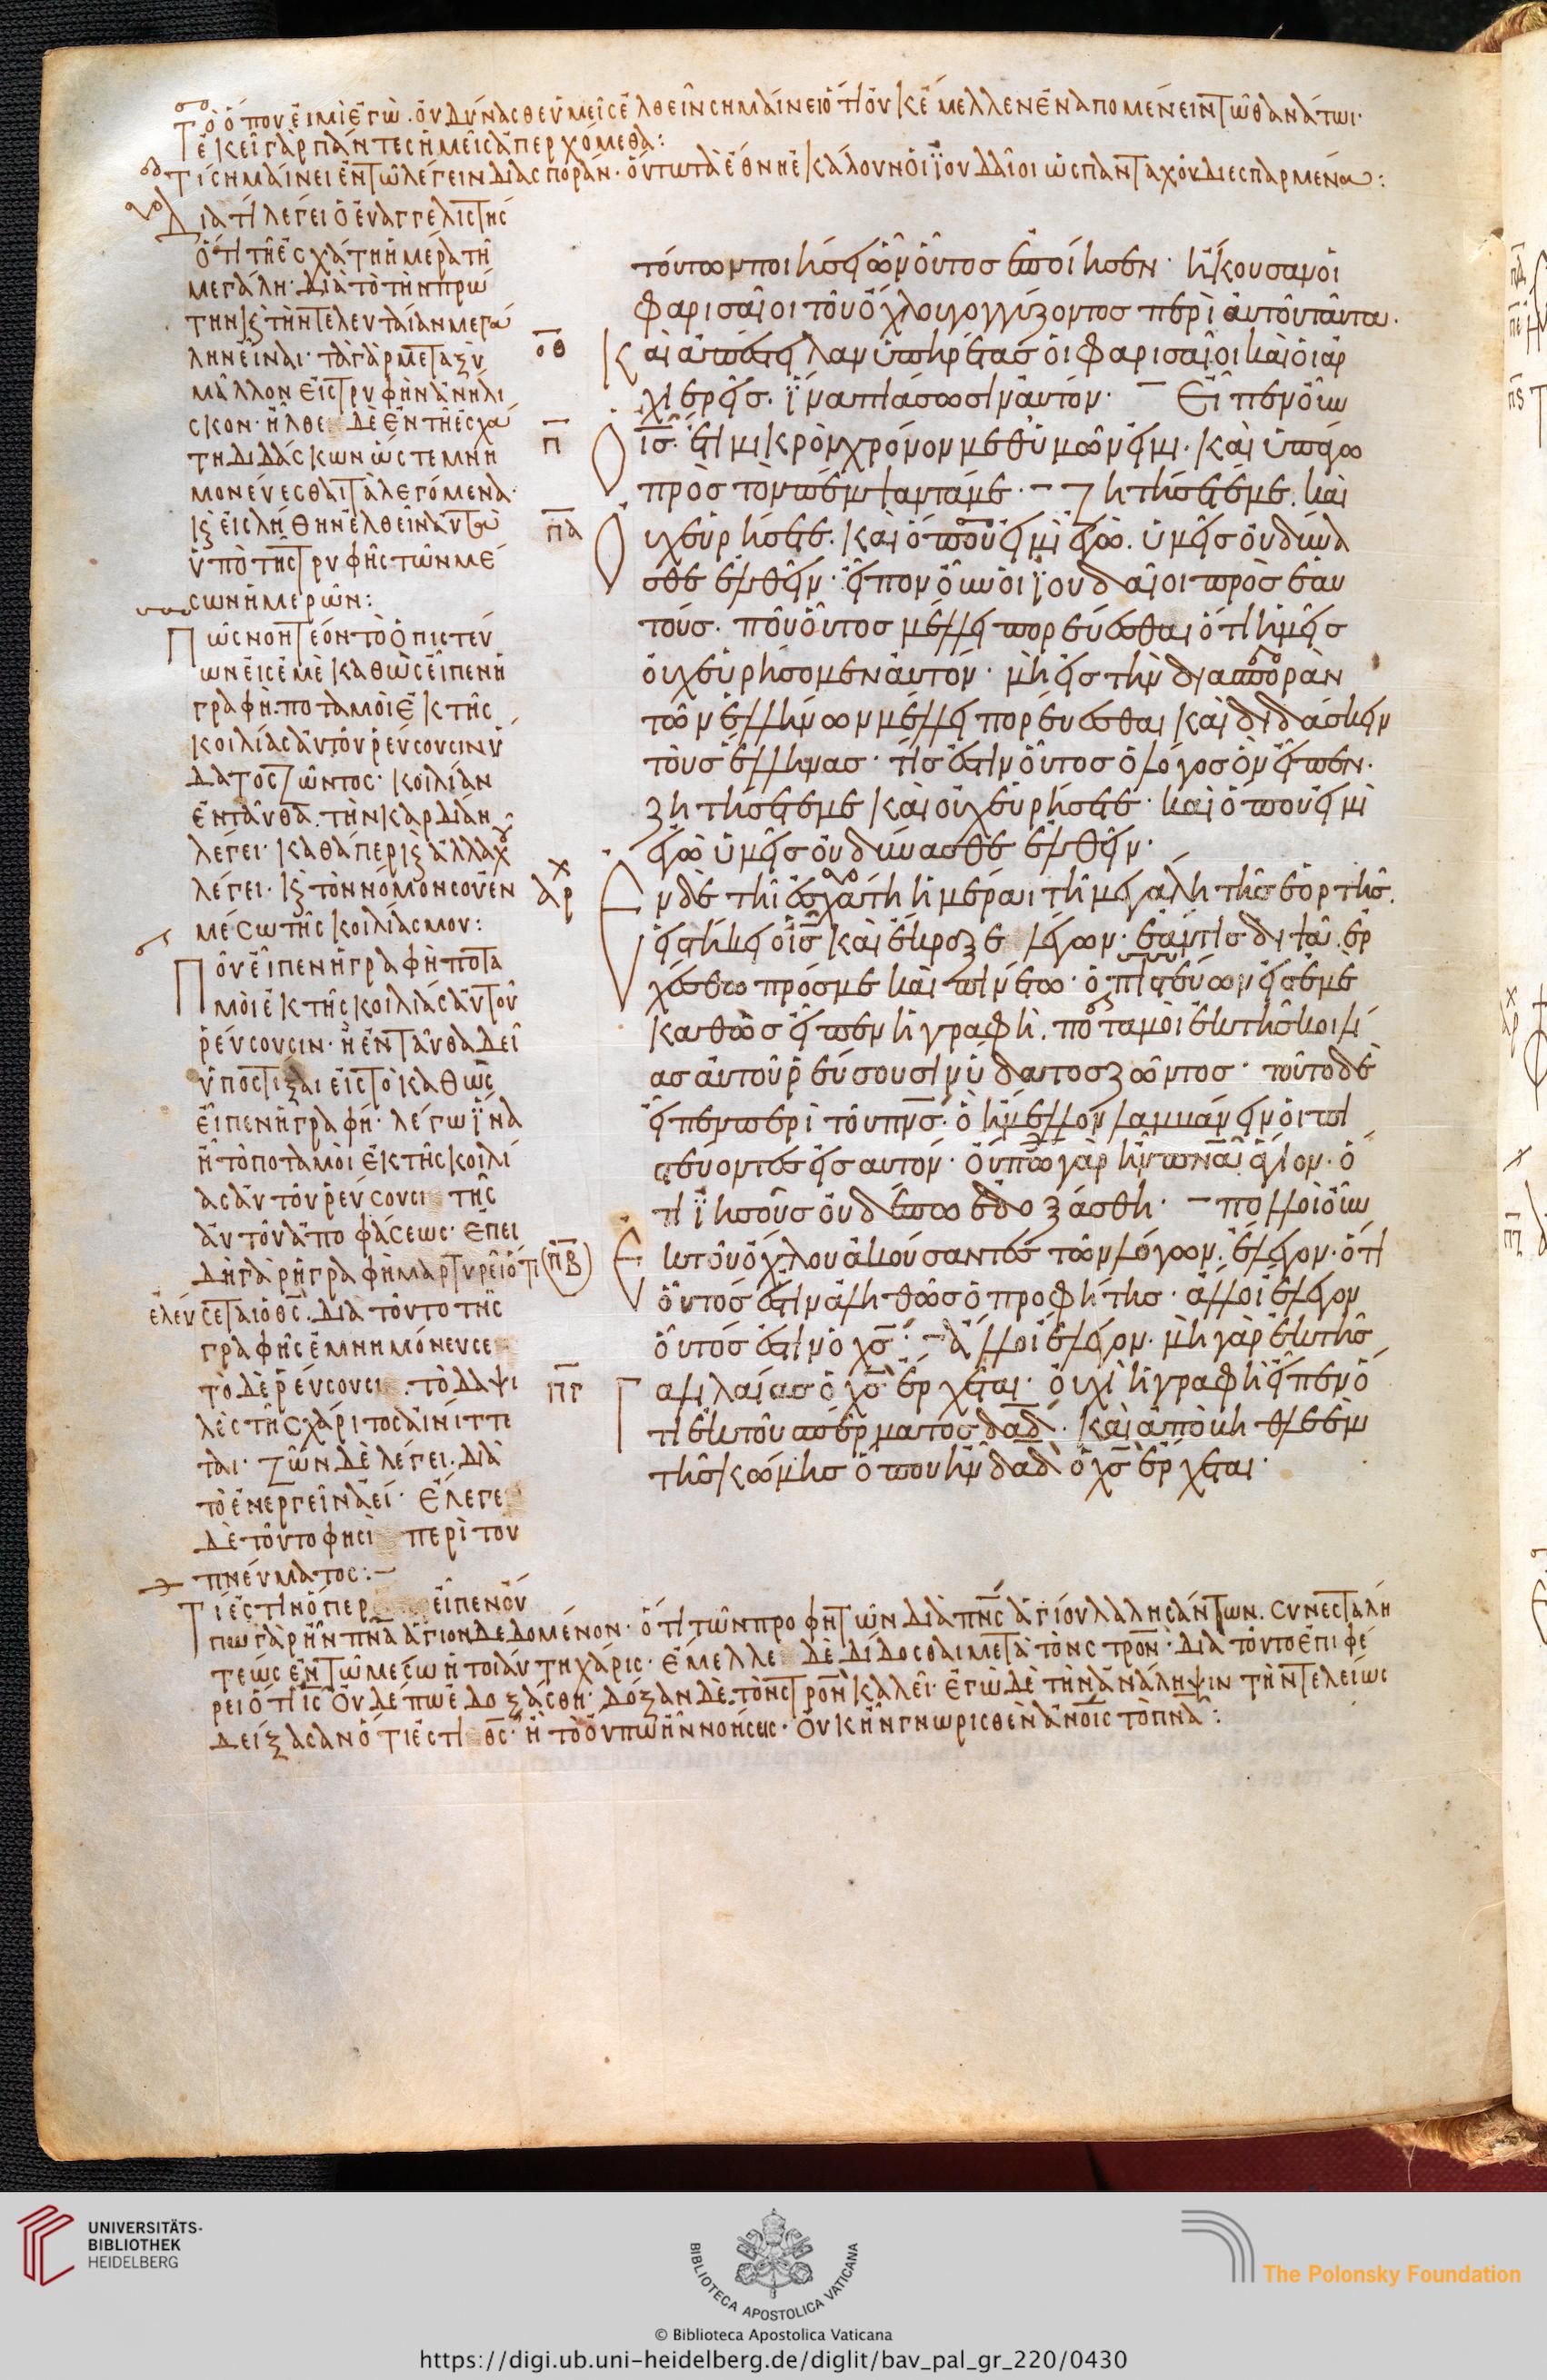 Τὸ ὅπου εἰμὶ ἐγὼ. οὐ δύνασθε ὑμεῖς ἐλθεῖν σημαίνει ὅτι οὐκ ἐμελλεν ἐναπομένειν τῶ θανάτωι·
ἐκεῖ γὰρ πάντες ἡμεῖς ἀπερχόμεθα:
Τί σημαίνει ἐν τῶ λέγειν διασποράν· οὕτω τὰ ἔθνη ἐκάλουν οἱ ϊουδαῖοι ὡς πανταχοῦ διεσπαρμένα:
Διατί λέγει ὁ εὐαγγελιστὴς
ὅτι τῆ ἐσχάτη ἡμέρα τῆ
μεγάλη· διὰ τὸ τὴν πρώ
την κ τὴν τελευταίαν μεγά
λην εἶναι· τὰ γὰρ μεταξὺ
μᾶλλον εἰς τρυφὴν ἀνήλι
σκον· ἦλθε δὲ ἐν τῆ ἐσχά
τη διδάσκων ὥστε μνη
μονεύεσθαι τὰ λεγόμενα·
κ εἰς λήθην ἐλθεῖν αὐτῶ
ὑπὸ τῆς τρυφῆς τῶν μέ
σων ἡμερῶν:
Πῶς νοητέον τὸ ὁ πιστεύ
ων εἰς ἐμὲ καθὼς εἶπεν ἡ
γραφὴ· ποταμοὶ ἐκ τῆς
κοιλίας αὐτοῦ ῥεύσουσιν ὕ
δατος ζῶντος· κοιλίαν
ἐνταῦθα. τὴν καρδίαν
λέγει· καθάπερ κ ἀλλαχοῦ
λέγει· κ τὸν νόμον σου ἐν
μέσω τῆς κοιλίας μου:
Ποῦ εἶπεν ἡ γραφὴ ποτα
μοὶ ἐκ τῆς κοιλίας αὐτοῦ
ῥεύσουσιν· ἢ ἐνταῦθα δεῖ
ὑποστίξαι εἰς τὸ καθὼς
εἶπεν ἡ γραφή· λέγω ϊνα
ἦ τὸ ποταμοὶ ἐκ τῆς κοιλί
ας αὐτοῦ ῥεύσουσι τῆς
αὐτοῦ ἀποφάσεως· ἐπει
δὴ γὰρ ἡ γραφὴ μαρτυρεῖ ὅτι
ἐλεύσεται ὁ θς. διὰ τοῦτο τῆς
γραφῆς ἐμνημόνευσε
τὸ δὲ ῥεύσουσι. τὸ δαψι
λὲς τῆς χάριτος αἰνίττε
ται· ζῶν δὲ λέγει. διὰ
τὸ ἐνεργεῖν ἀεί· ἔλεγε
δὲ τοῦτο φησὶ περὶ του
πνεύματος:
Τί ἐστιν ὅπερ εἶπεν οὔ
πω γὰρ ἦν πνα ἅγιον δεδομένον· ὅτι τῶν προφητῶν διὰ πνς ἁγίου λαλησάντων. συνεστάλη
τέως ἐν τῶ μέσω ἡ τοιαύτη χάρις· ἔμελλε δὲ δίδοσθαι μετὰ τὸν στρον· διὰ τοῦτο ἐπιφέ
ρει ὅτι ις οὐδέπω ἐδοξάσθη· δόξαν δὲ τὸν στρον καλεῖ· ἐγὼ δὲ τὴν ἀνάληψιν τὴν τελείως
δείξασαν ὅτι ἐστὶ θς· ἢ τὸ οὔπω ἦν νοήσεις· οὐκ ἦν γνωρισθὲν ἀνοις τὸ πνα:
τούτων ποιήσει ὧν οὗτος ἐποίησεν· ἤκουσαν οἱ
φαρισαῖοι τοῦ ὄχλου γογγίζοντος περὶ αὐτοῦ ταῦτα·
οθ Καὶ ἀπέστειλαν ὑπηρέτας οἱ φαρισαῖοι καὶ οἱ ἀρ
χιερεῖς. ϊνα πιάσωσιν αὐτόν· Εἶπεν οὖν
π ὁ ις. ἔτι μικρὸν χρόνον μεθ' ὑμῶν εἰμι· καὶ ὑπάγω
πρὸς τὸν πέμψαντά με· ζητήσετέ με. καὶ
πα Οὐχ εὑρήσετε. καὶ ὅπου εἰμὶ ἐγὼ. ὑμεῖς οὐ δύνα
σθε ἐλθεῖν· εἶπον οὖν οἱ ϊουδαῖοι πρὸς ἑαυ
τούς. ποῦ οὗτος μέλλει πορεύεσθαι ὅτι ἡμεῖς
οὐχ εὑρήσομεν αὐτόν· μὴ εἰς τὴν διασπορὰν
τῶν ἑλλήνων μέλλει πορεύεσθαι καὶ διδάσκειν
τοὺς ἕλληνας· τίς ἐστιν οὗτος ὁ λόγος ὃν εἶπεν·
ζητήσετέ με καὶ οὐχ εὑρήσετε· καὶ ὅπου εἰμὶ
ἐγὼ ὑμεῖς οὐ δύνασθε ἐλθεῖν·
Ἐν δὲ τῆ ἐσχάτη ἡμέραι τῆ μεγάλη τῆς ἑορτῆς.
εἱστήκει ὁ ις καὶ ἔκραζε λέγων· ἐάν τις διψᾶ. ἐρ
χέσθω πρός με καὶ πινέτω· ὁ πιστεύων εἰς ἐμὲ
καθὼς εἶπεν ἡ γραφὴ. ποταμοὶ ἐκ τῆς κοιλί
ας αὐτοῦ ῥεύσουσιν ὕδατος ζῶντος· τοῦτο δὲ
εἶπεν περὶ τοῦ πνς· ὃ ἤμελλον λαμβάνειν οἱ πι
στεύοντες εἰς αυτόν· οὔπω γὰρ ἦν πνα ἅγιον· ὅ
τι ϊησοῦς οὐδέπω ἐδοξάσθη· πολλοὶ οὖν
πβ Ἐκ τοῦ ὄχλου ἀκούσαντες τῶν λόγων. ἔλεγον· ὅτι
οὗτός ἐστιν ἀληθῶς ὁ προφήτης· ἄλλοι ἔλεγον
οὗτός ἐστιν ὁ χς· ἄλλοι ἔλεγον· μὴ γὰρ ἐκ τῆς
πγ Γαλιλαίας ὁ χς ἔρχεται· οὐχὶ ἡ γραφὴ εἶπεν ὅ
τι ἐκ τοῦ σπέρματος δαδ. καὶ ἀπὸ βηθλεὲμ
τῆς κώμης ὅπου ἦν δαδ ὁ χς ἔρχεται·
UNIVERSITÄTS-
BIBLIOTHEK
HEIDELBERG
BIBLIOTECA APOSTOLICA VATICANA
The Polonsky Foundation
© Biblioteca Apostolica Vaticana
https://digi.ub.uni-heidelberg.de/diglit/bav_pal_gr_220/0430